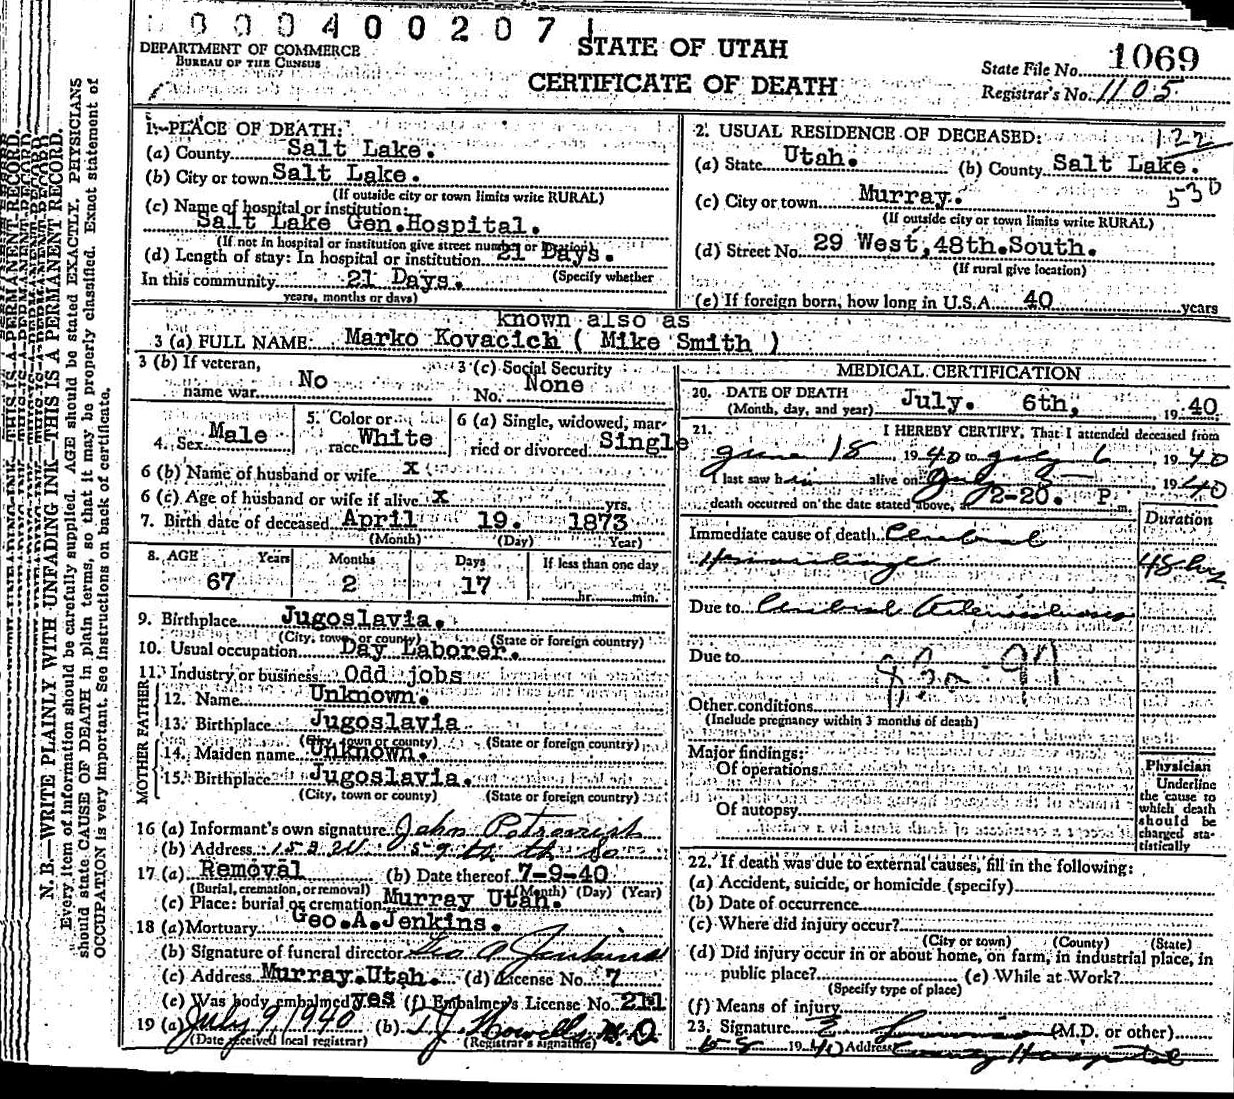 000400207
DEPARTMENT OF COMMERCE
BUREAU OF THE CENSUS
STATE OF UTAH
CERTIFICATE OF DEATH
State File No. 1069
Registrar's No. 1105
1. PLACE OF DEATH:
(a) County Salt Lake.
(b) City or town Salt Lake.
(If outside city or town limits write RURAL)
(c) Name of hospital or institution:
Salt Lake Gen.Hospital.
(If not in hospital or institution give street number or location)
(d) Length of stay: In hospital or institution 21 Days.
In this community 21 Days. (Specify whether
years, months or days)
2. USUAL RESIDENCE OF DECEASED: 122
(a) State Utah. (b) County Salt Lake.
530
(c) City or town Murray.
(If outside city or town limits write RURAL)
(d) Street No. 29 West,48th.South.
(If rural give location)
(e) If foreign born, how long in U.S.A. 40 years
known also as
3 (a) FULL NAME: Marko Kovacich ( Mike Smith )
3 (b) If veteran, name war No
3 (c) Social Security No. None
4. Sex Male
5. Color or race White
6 (a) Single, widowed, married or divorced Single
6 (b) Name of husband or wife x
6 (c) Age of husband or wife if alive x yrs.
7. Birth date of deceased April 19. 1873
(Month) (Day) Year)
8. AGE Years Months Days If less than one day
67 2 17 hr. min.
9. Birthplace Jugoslavia.
(City, town or county) (State or foreign country)
10. Usual occupation Day Laborer.
11. Industry or business Odd jobs
FATHER
12. Name Unknown.
13. Birthplace Jugoslavia
(City, town or county) (State or foreign country)
MOTHER
14. Maiden name Unknown.
15. Birthplace Jugoslavia.
(City, town or county) (State or foreign country)
16 (a) Informant's own signature John
(b) Address So
17 (a) Removal (b) Date thereof 7-9-40
(Burial, cremation, or removal) (Month) (Day) (Year)
(c) Place: burial or cremation Murray Utah.
18 (a) Mortuary Geo.A.Jenkins.
(b) Signature of funeral director Geo A Jenkins
(c) Address Murray.Utah. (d) License No. 7
(e) Was body embalmed yes (f) Embalmer's License No. 211
19 (a) July 9, 1940 (b) T.J. Howells M.D.
(Date received local registrar) (Registrar's signature)
MEDICAL CERTIFICATION
20. DATE OF DEATH
(Month, day, and year) July. 6th, 1940
21. I HEREBY CERTIFY, That I attended deceased from
June 18 1940 to July 6, 1940
I last saw him alive on July 5 1940
death occurred on the date stated above, at 2-20. P m.
Duration
Immediate cause of death Cerebral
Hemorrhage 48 hrs
Due to Cerebral Arteriosclerosis
Due to
Other conditions
(Include pregnancy within 3 months of death)
Major findings:
Of operations
Of autopsy
Physician
Underline the cause to which death should be charged statistically
22. If death was due to external causes, fill in the following:
(a) Accident, suicide, or homicide (specify)
(b) Date of occurrence
(c) Where did injury occur?
(City or town) (County) (State)
(d) Did injury occur in or about home, on farm, in industrial place, in
public place? (e) While at Work?
(Specify type of place)
(f) Means of injury
23. Signature (M.D. or other)
1940 Address County Hospital
N. B.—WRITE PLAINLY WITH UNFADING INK—THIS IS A PERMANENT RECORD.
Every item of information should be carefully supplied. AGE should be stated EXACTLY. PHYSICIANS
should state CAUSE OF DEATH in plain terms, so that it may be properly classified. Exact statement of
OCCUPATION is very important. See Instructions on back of certificate.